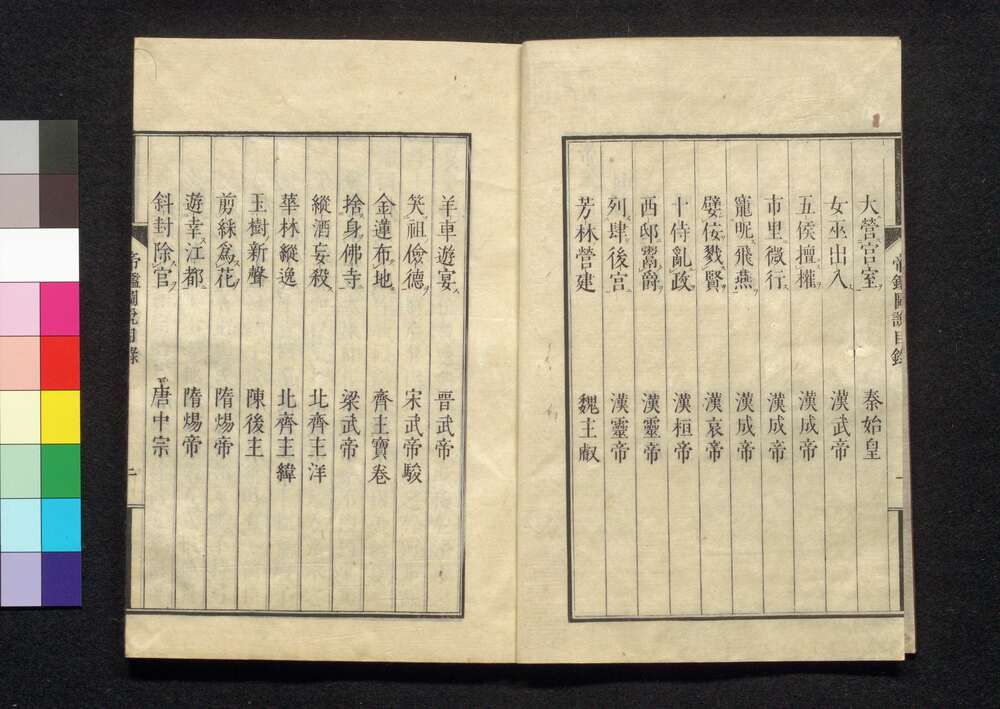 帝鑑圖說目錄
大營宮室 秦始皇
女巫出入 漢武帝
五侯擅權 漢成帝
市里微行 漢成帝
寵昵飛燕 漢成帝
嬖佞戮賢 漢哀帝
十侍亂政 漢桓帝
西邸鬻爵 漢靈帝
列肆後宮 漢靈帝
芳林營建 魏主叡
羊車遊宴 晋武帝
笑祖儉德 宋武帝駿
金蓮布地 齊主寶卷
捨身佛寺 梁武帝
縱酒妄殺 北齊主洋
華林縱逸 北齊主緯
玉樹新聲 陳後主
剪綵爲花 隋煬帝
遊幸江都 隋煬帝
斜封除官 唐中宗
帝鑑圖說目錄